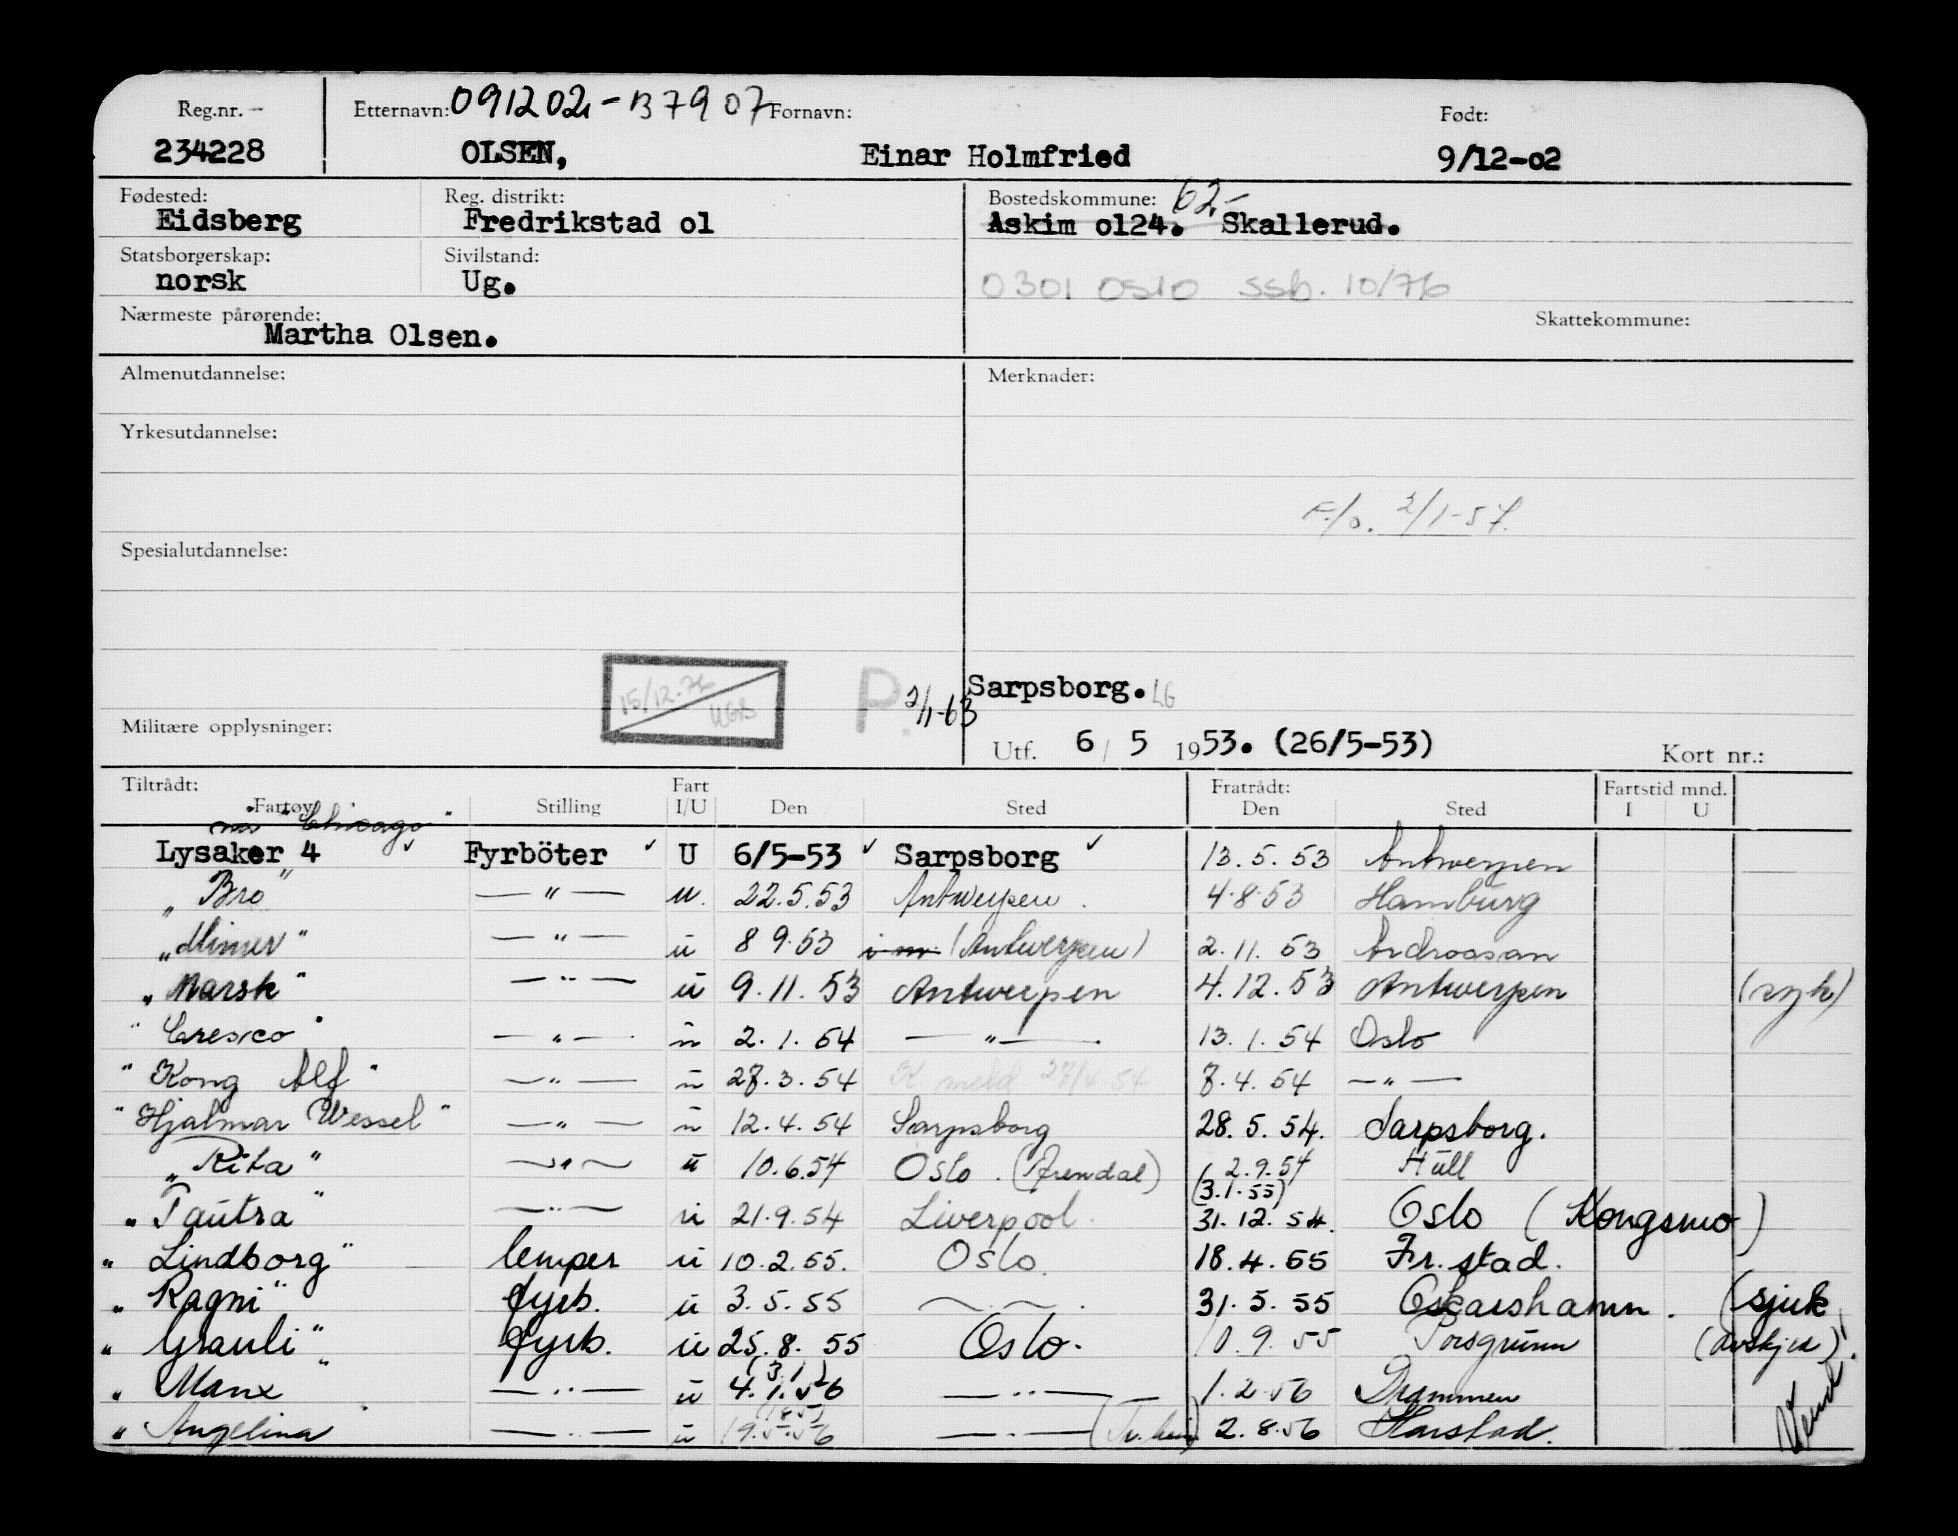 Reg.nr. — Etternavn: 091202-B7907 Fornavn: Født:
234228 OLSEN, Einar Holmfried 9/12-02
Fødested: Reg. distrikt: Bostedskommune: 62,-
Eidsberg Fredrikstad ol Askim o124. Skallerud.
Statsborgerskap: Sivilstand:
norsk Ug. 0301 OSLO SSB. 10/76
Nærmeste pårørende: Skattekommune:
Martha Olsen.
Almenutdannelse: Merknader:
Yrkesutdannelse:
F./o. 2/1-57.
Spesialutdannelse:
15/12-76
P. 2/1-63 Sarpsborg. LG
Militære opplysninger:
Utf. 6/5 1953. (26/5-53) Kort nr.:
Tiltrådt: Fart Fratrådt: Fartstid mnd.
Fartøy Stilling I/U Den Sted Den Sted I U
"Chicago"
Lysaker 4 Fyrböter U 6/5-53 Sarpsborg 13.5.53 Antwerpen
"Bro" —"— u. 22.5.53 Antwerpen. 4.8.53 Hamburg
"Mimer" —"— u 8 9.53 (Antwerpen) 2.11.53 Ardrossan
"Marsk" —"— u 9.11.53 Antwerpen 4.12.53 Antwerpen (syk)
"Cresco" —"— u 2.1.54 —"— 13.1.54 Oslo
"Kong Alf" —"— u 27.3.54 K meld 27/4-54 7.4.54 —"—
"Hjalmar Wessel" —"— u 12.4.54 Sarpsborg 28.5.54. Sarpsborg.
"Rita" —"— u 10.6.54 Oslo. (Arendal) 2.9.54 Hull
(3.1.55)
"Tautra" —"— u 21.9.54 Liverpool. 31.12.54. Oslo (Kongsmo)
"Lindborg" lemper u 10.2.55. Oslo. 18.4.55 Fr.stad.
"Ragni" fyrb. u 3.5.55 —"— 31.5.55 Oskarshamn. (sjuk
"Grauli" fyrb. u 25.8.55 Oslo. 10.9.55 Porsgrunn (avskjed).
(3.1)
"Manx" —"— u 4.1.56 —"— 1.2.56 Drammen
"Angelina" —"— u 19.5.56 —"— 2.8.56 Harstad.